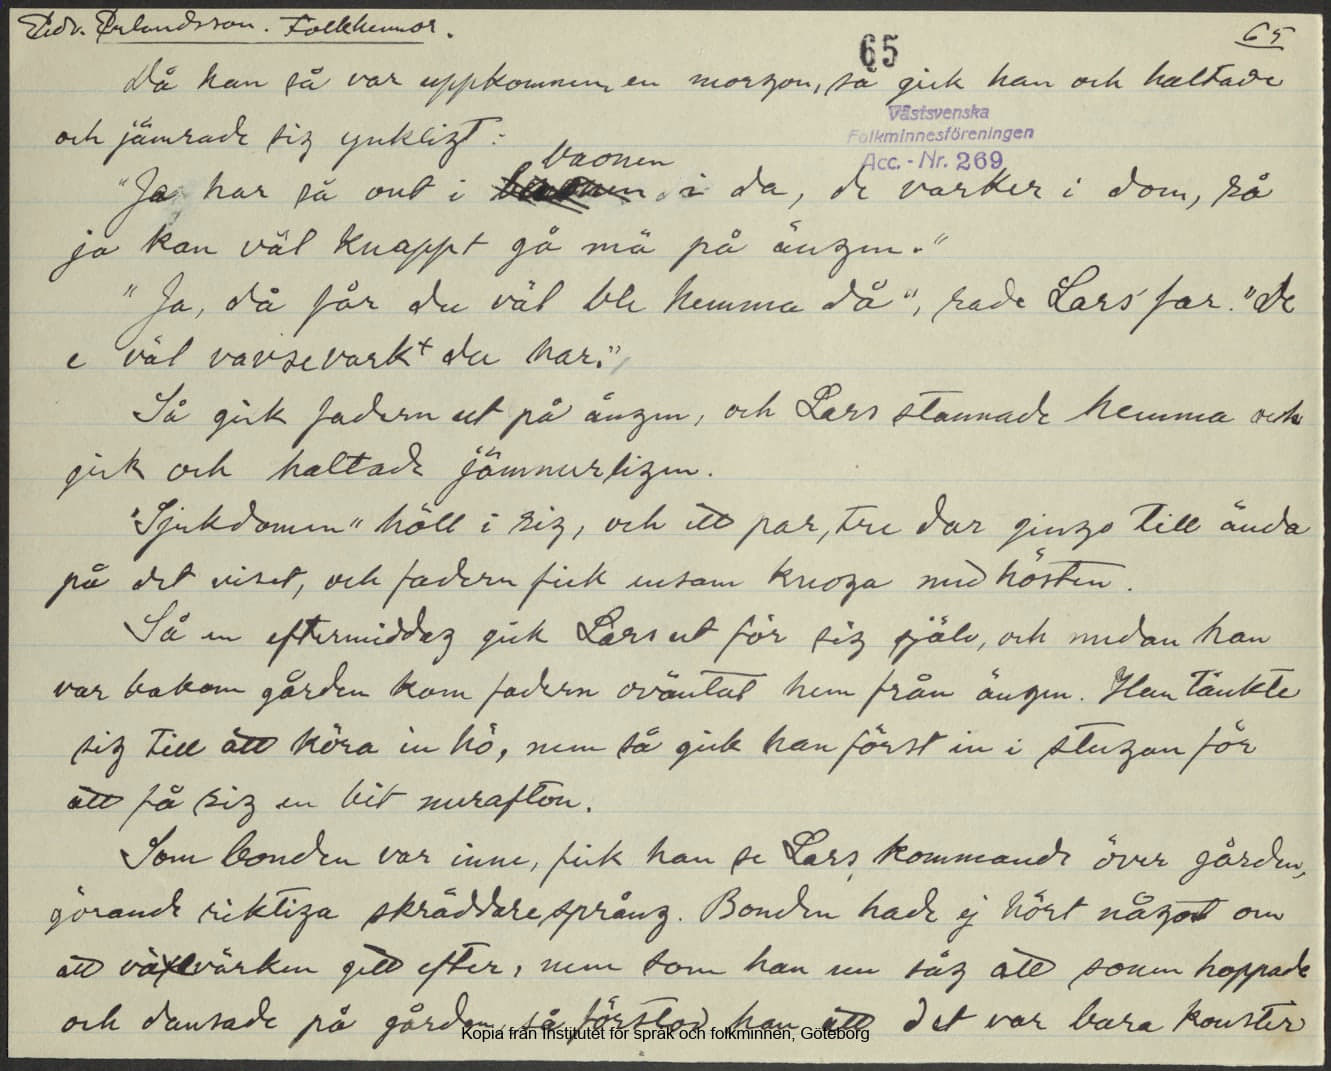 Edv. Erlandsson. Folkhumor.
65
65
Då han så var uppkommen en morgon, så gick han och haltade
Västsvenska
Folkminnesföreningen
Acc. - Nr. 269
och jämrade sig ynkligt:
baonen
"Ja har så ont i i da, de varker i dom, så
ja kan väl knappt gå mä på ängen."
"Ja, då får du väl ble hemma då", sade Lars' far. "De
e väl vavsevark du har."
Så gick fadern ut på ängen, och Lars stannade hemma och
gick och haltade jämmerligen.
"Sjukdomen" höll i sig, och ett par, tre dar gingo till ända
på det viset, och fadern fick ensam knoga med hösten.
Så en eftermiddag gick Lars ut för sig själv, och medan han
var bakom gården kom fadern oväntat hem från ängen. Han tänkte
sig till att köra in hö, men så gick han först in i stugan för
att få sig en bit merafton.
Som bonden var inne, fick han se Lars kommande över gården,
görande riktiga skräddaresprång. Bonden hade ej hört något om
att växevärken gett efter, men som han nu såg att sonen hoppade
och dansade på gården, så förstod han att det var bara konster
Kopia från Institutet för språk och folkminnen, Göteborg